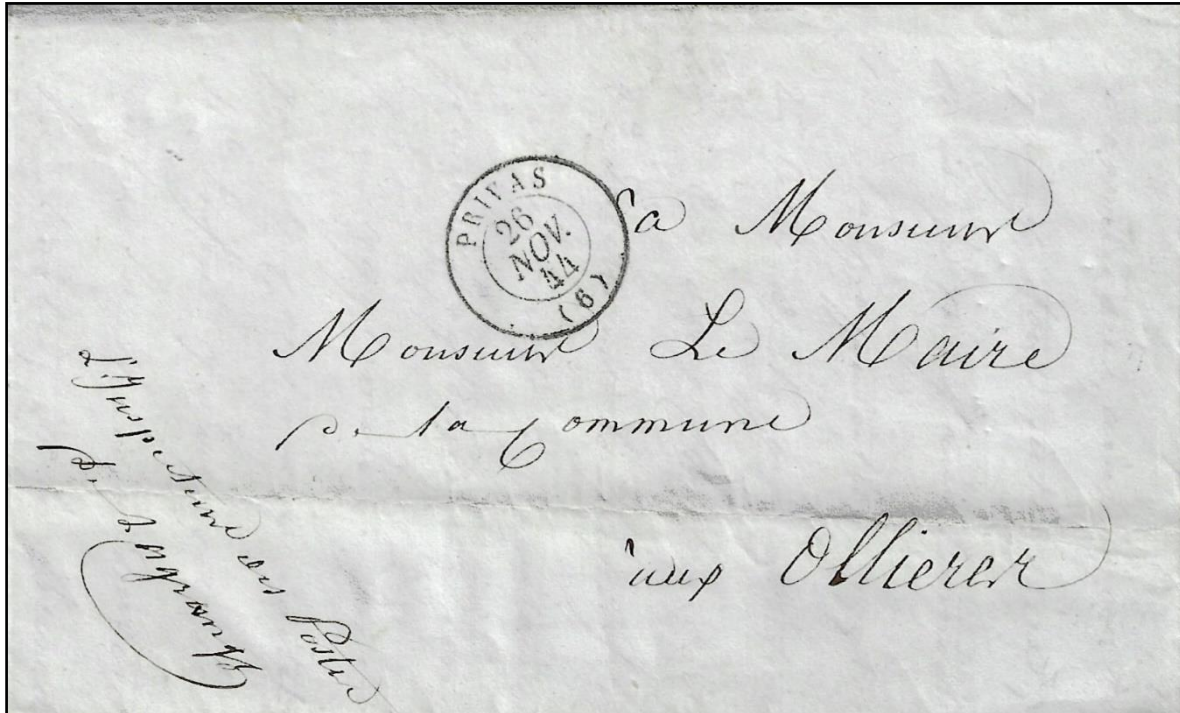 PRIVAS
26
NOV.
44
(6)
a Monsieur
Monsieur Le Maire
de la Commune
aux Ollieres
des Postes